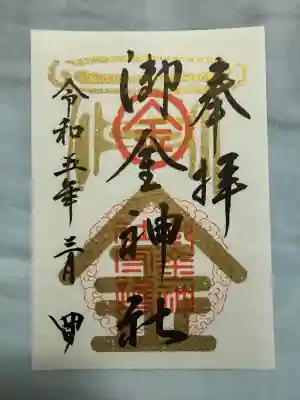 奉拝
御金神社
令和五年 三月 四日
金